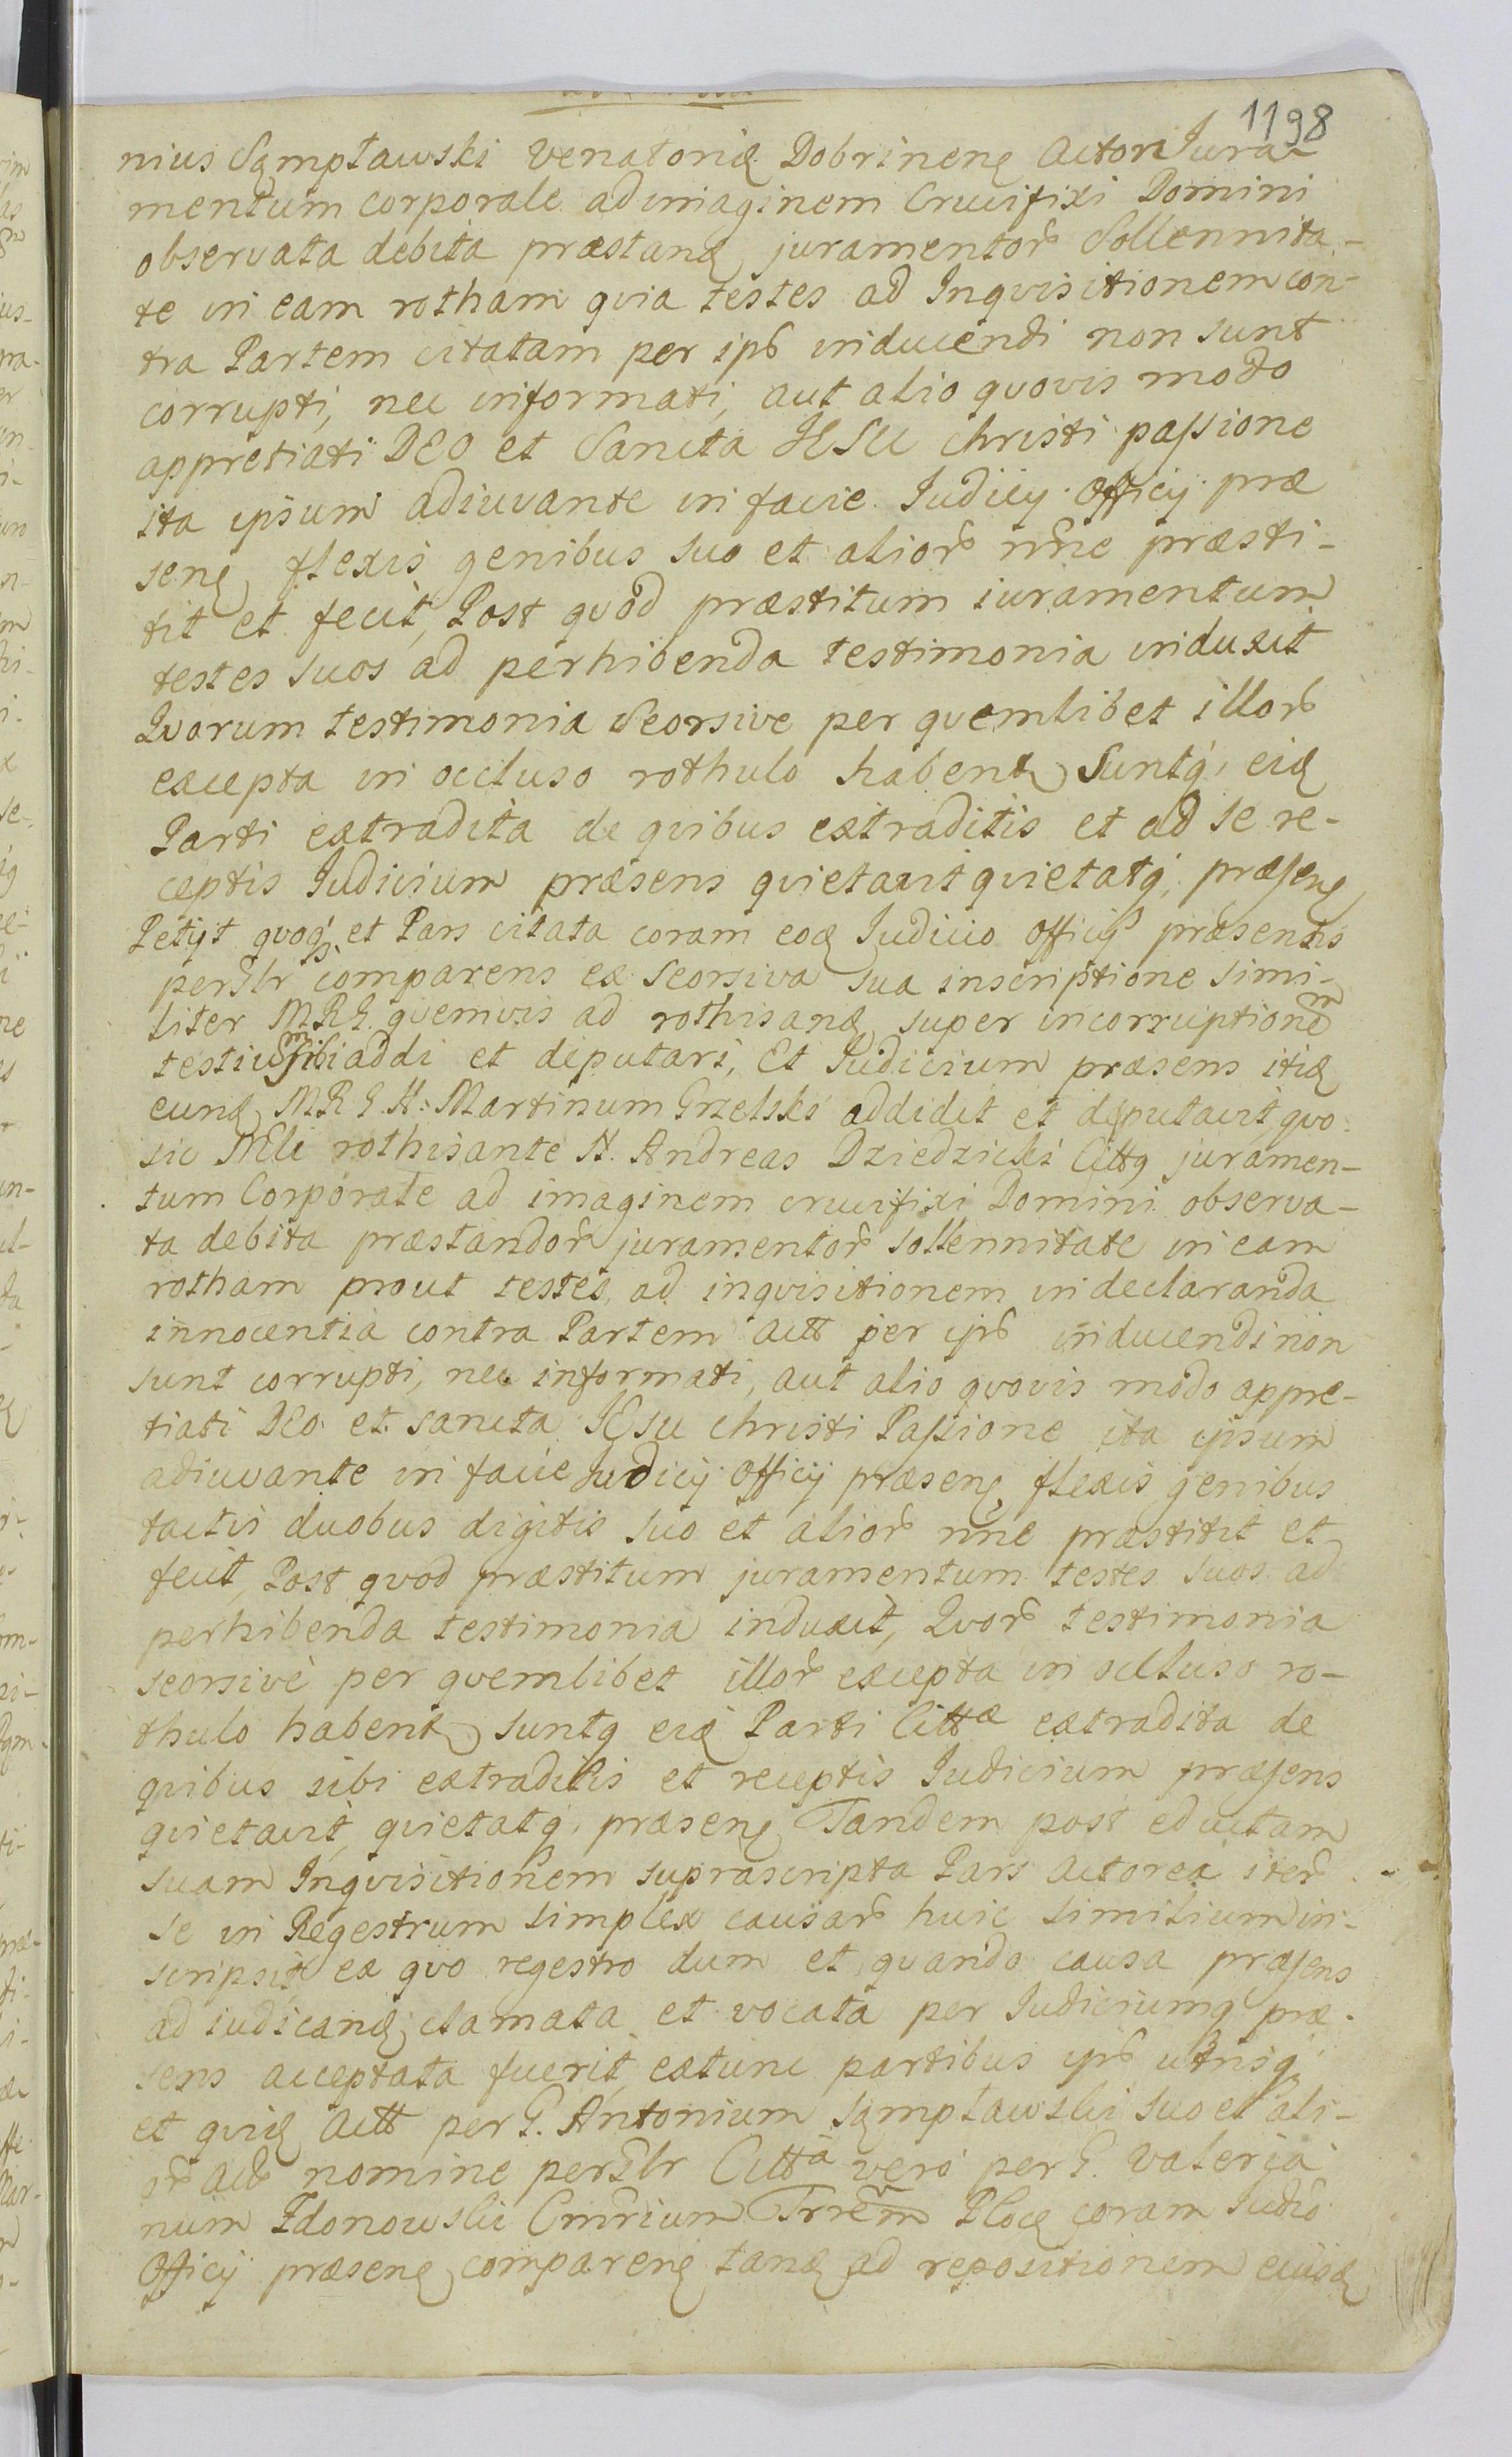 1198
nius Sąmpławski Venatorię Dobrinenę Actor Jura-
mentum corporale ad imaginem Crucifixi Domini
observata debita præstandę juramentor Sollennita-
te in eam rotham quia testes ad Inqvisitionem con-
tra Partem citatam per ips inducendi non sunt
corrupti, nec informati, aut alio qvovis modo
appretiati DEO et Sancta JESU christi passione
ita ipsum adiuvante in facie Iudicij Officij præ
senę flexis genibus suo et alior nne præsti-
tit et fecit, Post qvod præstitum iuramentum
testes suos ad perhibenda testimonia induxit
Qvorum testimonia Seorsive per qvemlibet illor
excepta in occluso rothulo habentę Suntq eidę
Parti extradita de qvibus extraditis et ad se re-
ceptis Iudicium præsens qvietavit qvietatq præsenę
Petijt qvoq et Pars citata coram eodę Iudicio Officij præsentis
perslr comparens ex Seorsiva sua inscriptione simi-
liter MRG qvemvis ad rothisandę super incorruptionem
testium sibi addi et deputari, Et Iudicium præsens itidę
eundę MRG. N: Martinum Grzelski addidit et deputavit qvo
sic Mli rothisante N. Andreas Dziedzicki Cittq juramen-
tum Corporale ad imaginem crucifixi Domini observa-
ta debita præstandor juramentor sollennitate in eam
rotham prout testes ad inqvisitionem in declaranda
innocentia contra Partem Actt per ips inducendi non
sunt corrupti, nec informati, aut alio qvovis modo appre-
tiati DEO et sancta JESu christi Passione ita ipsum
adiuvante in facie Iudicij Officij præsenę flexis genibus
tactis duobus digitis suo et alior nne præstitit et
fecit, Post qvod præstitum juramentum testes suos ad
perhibenda testimonia induxit, Qvor testimonia
seorsivè per qvemlibet illor excepta in occluso ro-
thulo habentę suntq eidę Parti Cittæ extradita de
qvibus sibi extraditis et receptis Iudicium præsens
qvietavit qvietatq præsenę Tandem post eductam
suam Inqvisitionem suprascripta Pars Actorea iter
se in Regestrum simplex causar huic similium in-
scripsit ex qvo regestro dum et qvando causa præsens
ad iudicandę clamata et vocata per Iudiciumq præ-
sens acceptata fuerit extunc partibus ips utrisq
et qvidę Actt per G. Antonium Sąmpławski suo et ali-
or nomine perslr Citta verò per G. Valeria
num Zdonowski Cmrium Trrem Plocę coram Iudio
Officij præsenę comparenę tandę ad repositionem eiusdę